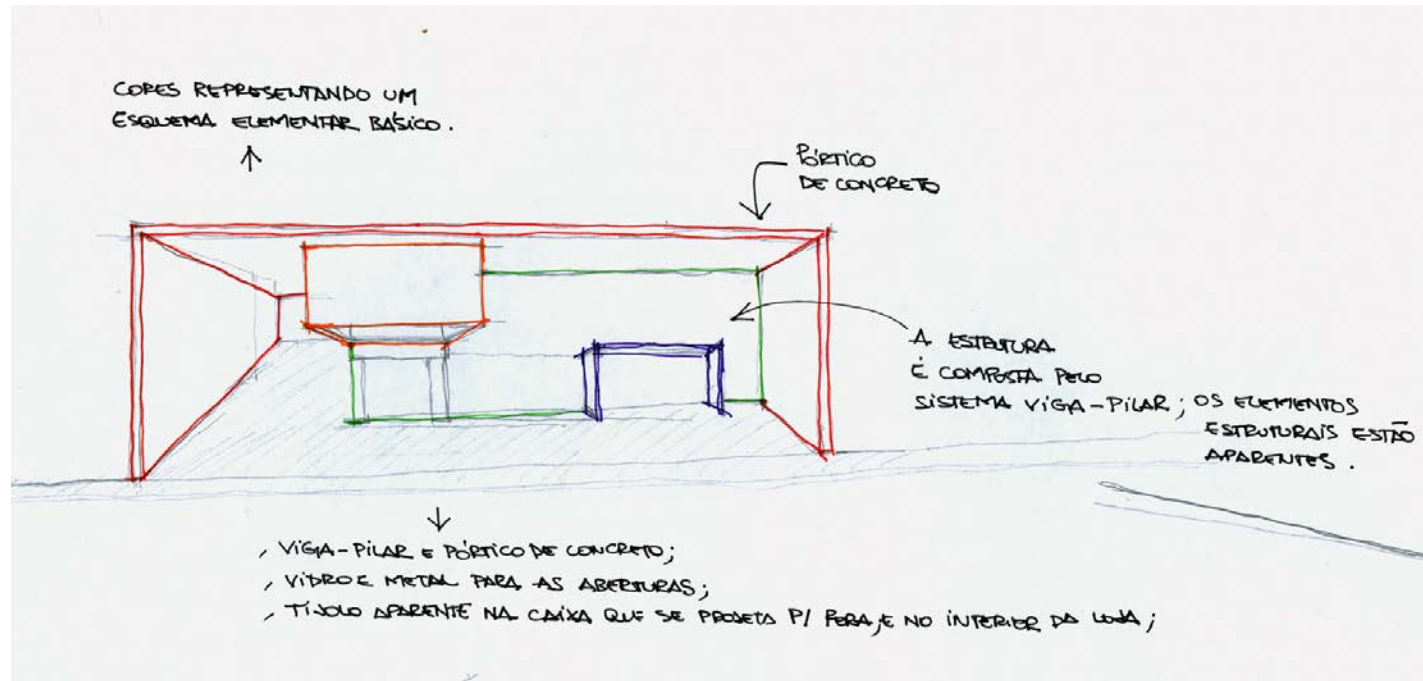 CORES REPRESENTANDO UM
ESQUEMA ELEMENTAR BÁSICO.
PÓRTICO
DE CONCRETO
A ESTRUTURA
É COMPOSTA PELO
SISTEMA VIGA-PILAR; OS ELEMENTOS
ESTRUTURAIS ESTÃO
APARENTES.
, VIGA-PILAR E PÓRTICO DE CONCRETO;
, VIDRO E METAL PARA AS ABERTURAS;
, TIJOLO APARENTE NA CAIXA QUE SE PROJETA P/ FORA, E NO INTERIOR DA LOJA;